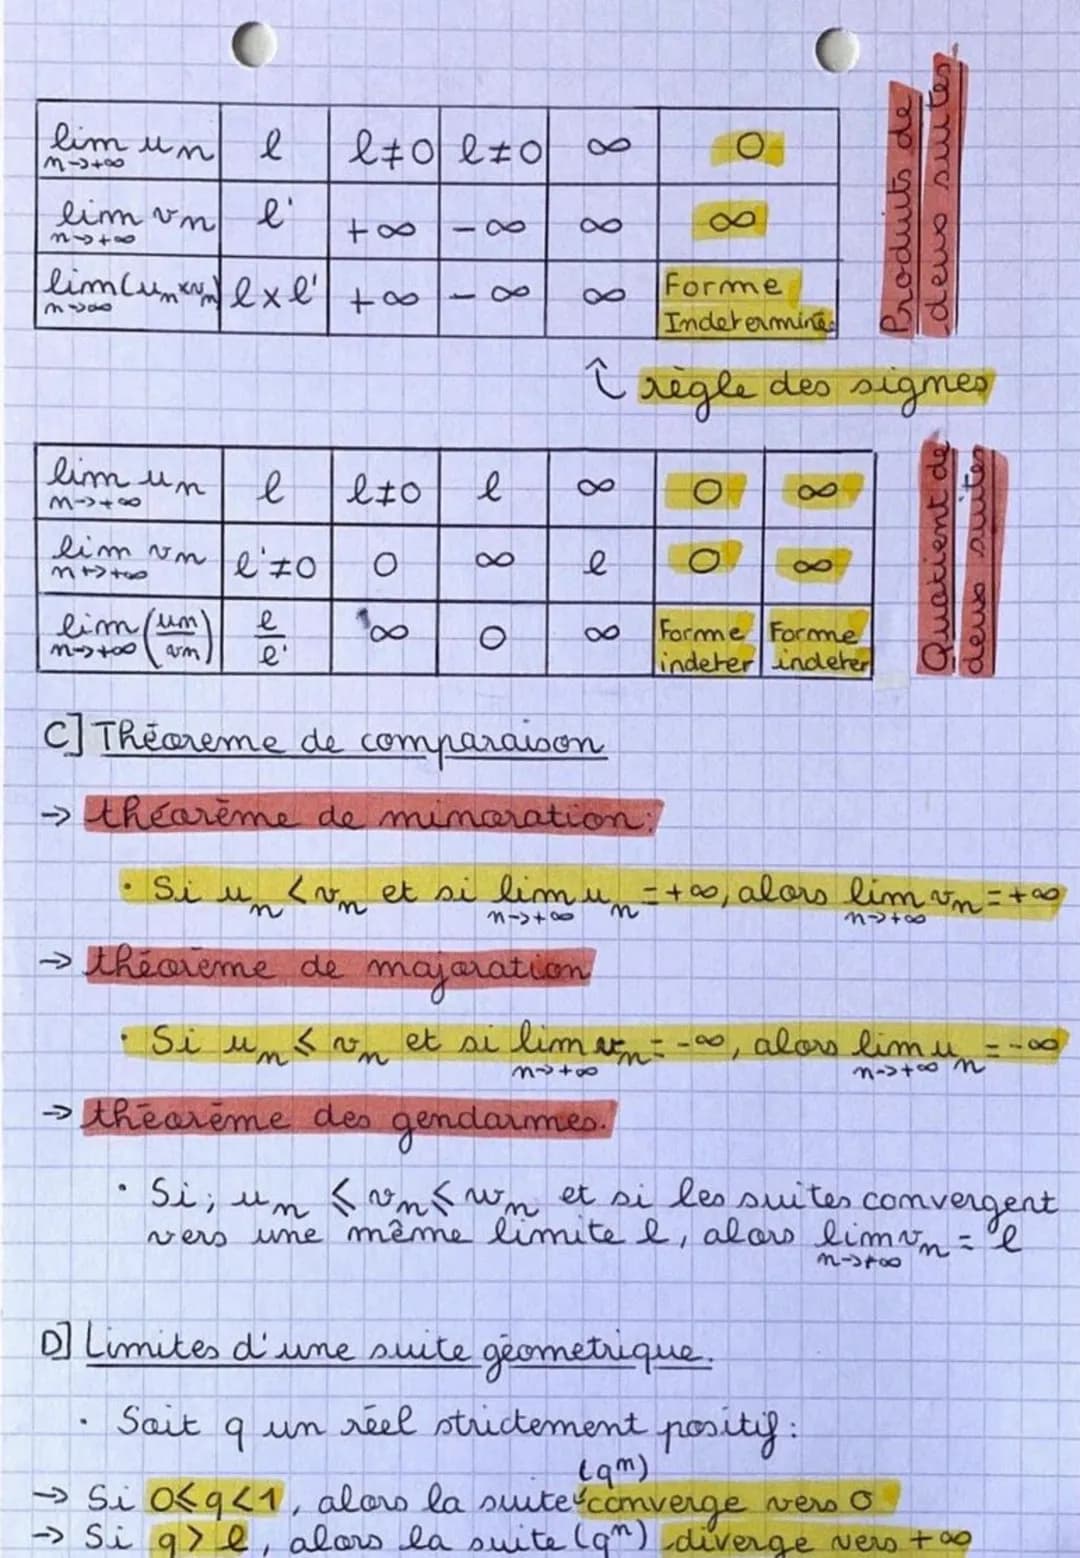 lim un n->+∞ | l | l≠0 | l≠0 | ∞ | 0
lim vn n->+∞ | l' | +∞ | -∞ | ∞ | ∞
lim(un×vn) n->∞ | l×l' | +∞ | -∞ | ∞ | Forme Indeterminé
Produits de
deux suites
↑ règle des signes
lim un n->+∞ | l | l≠0 | l | ∞ | 0 | ∞
lim vn n->+∞ | l'≠0 | 0 | ∞ | l | 0 | ∞
lim (un/vn) n->+∞ | l/l' | ∞ | 0 | ∞ | Forme indeter | Forme indeter
Quotient de
deux suites
C] Théoreme de comparaison
-> théorème de minoration:
• Si un < vn et si lim un = +∞, alors lim vn = +∞
n->+∞ n->+∞
-> théorème de majoration
• Si un ≤ vn et si lim vn = -∞, alors lim un = -∞
n->+∞ n->+∞
-> théorème des gendarmes.
• Si, un ≤ vn ≤ wn et si les suites convergent
vers une même limite l, alors lim vn = l
n->+∞
D] Limites d'une suite géometrique.
• Soit q un réel strictement positif:
-> Si 0≤q<1, alors la suite (qn) converge vers 0
-> Si q > l, alors la suite (qn) diverge vers +∞